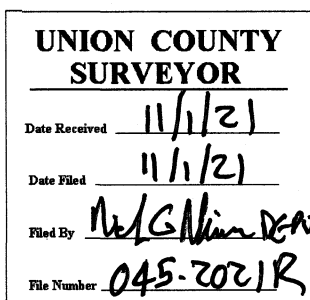 UNION COUNTY
SURVEYOR
Date Received 11/1/21
Date Filed 11/1/21
Filed By
File Number 045-2021R